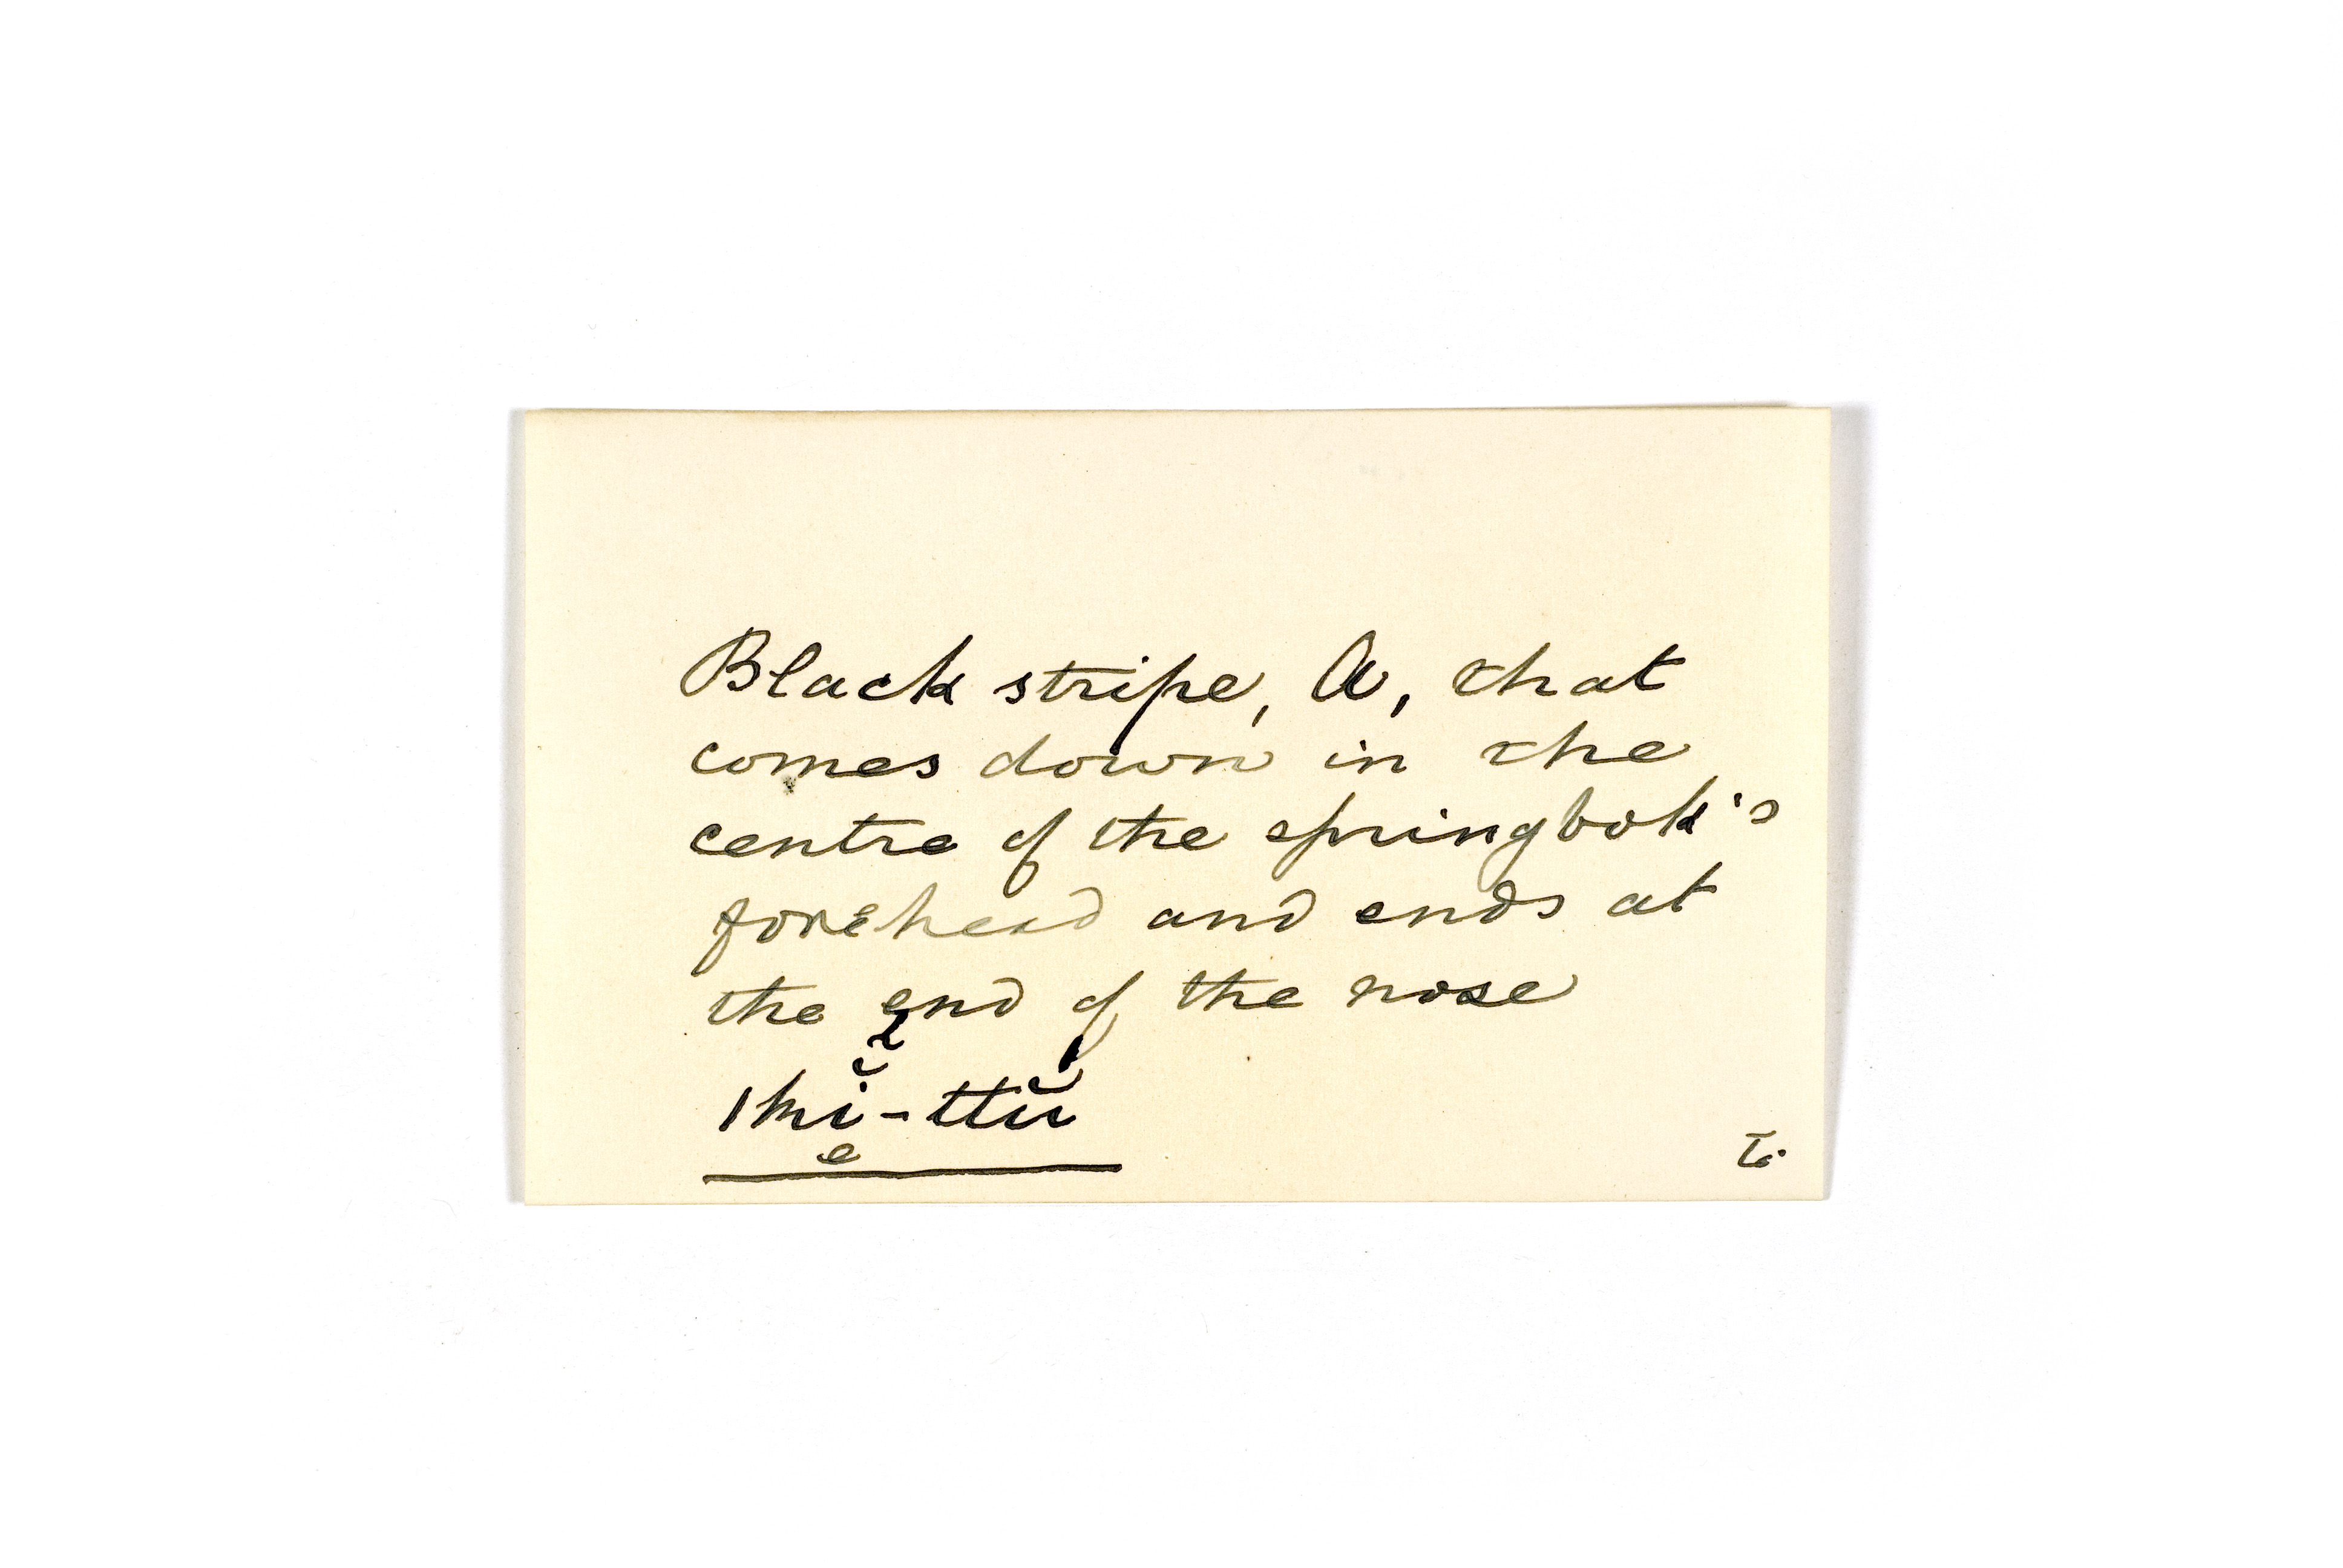 Black stripe, A, that
comes down in the
centre of the springbok's
forehead and ends at
the end of the nose